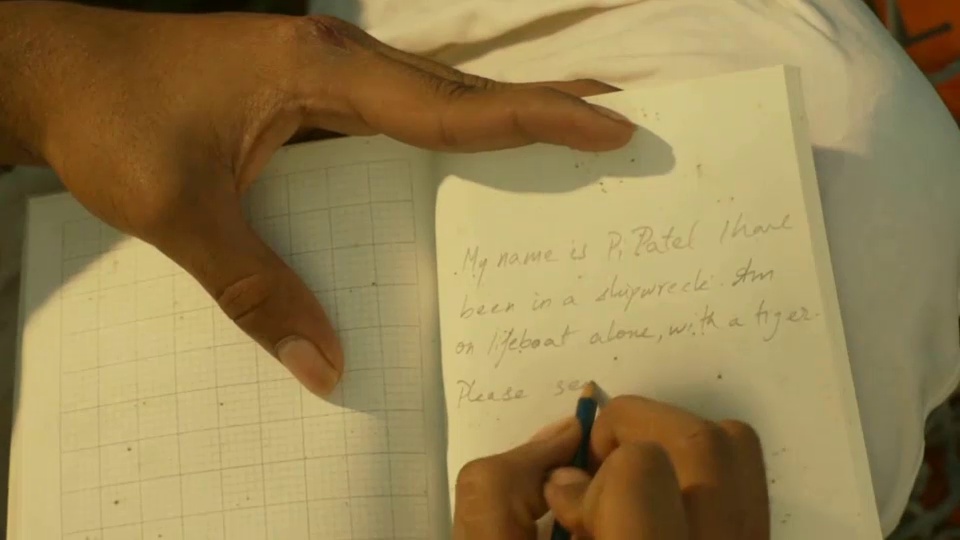 My name is Pi Patel I have
been in a shipwreck. Am
on lifeboat alone, with a tiger.
Please se